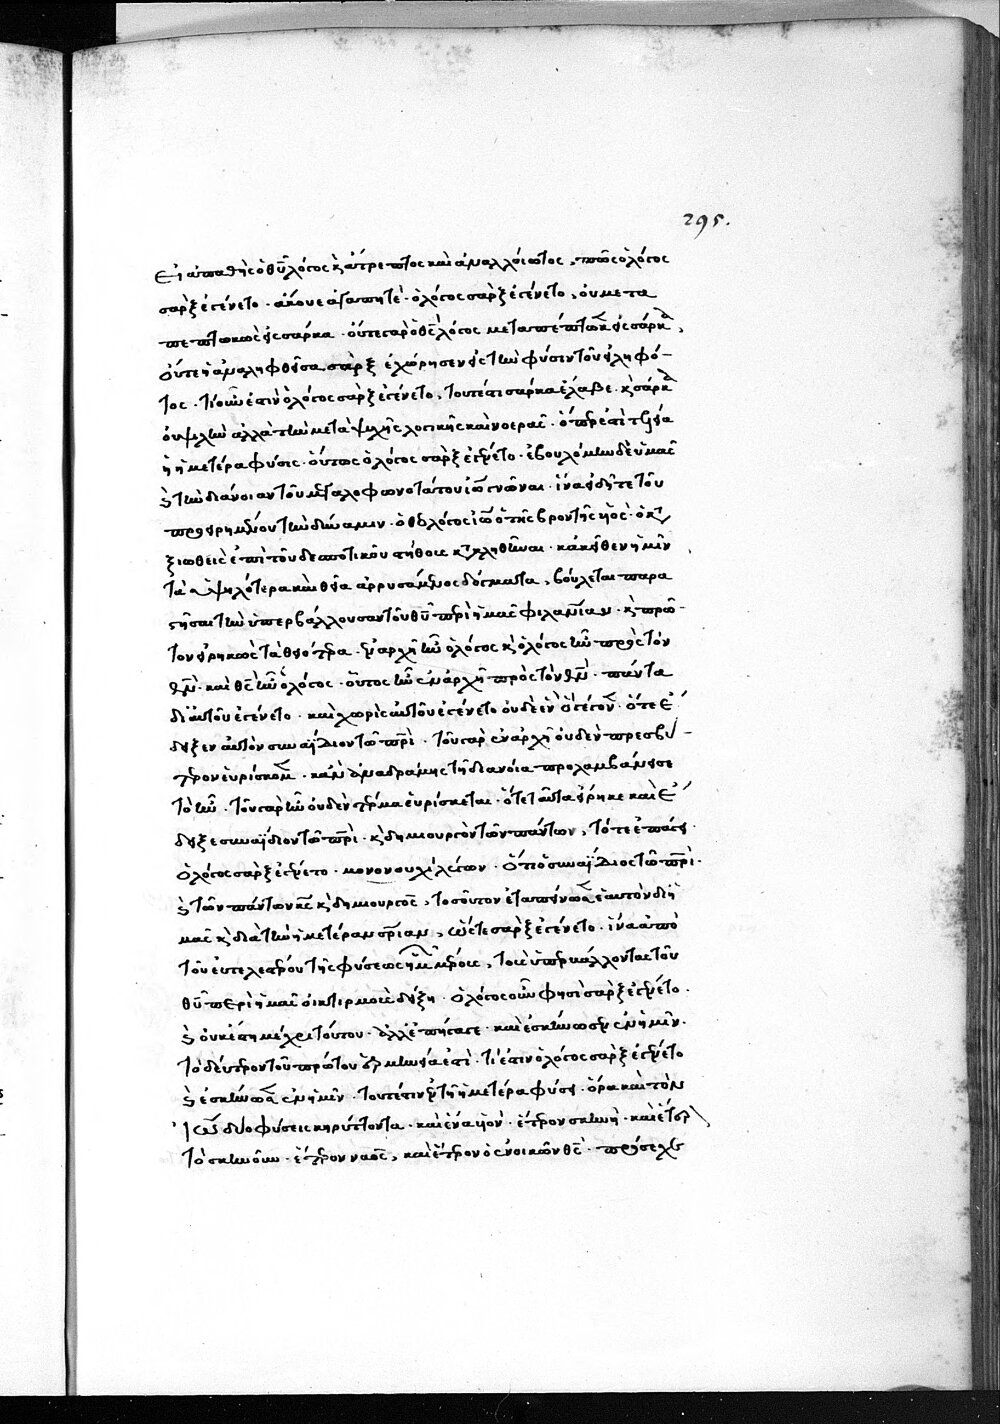 295.
Εἰ ἀπαθὴς ὁ θῦ λόγος κ ἄτρεπτος καὶ ἀναλλοίωτος, πῶς ὁ λόγος
σὰρξ ἐγένετο. ἄκουε ἀγαπητέ. ὁ λόγος σὰρξ ἐγένετο, οὐ μετα
πεπτωκὼς εἰς σάρκα. οὔτε γὰρ ὁ θς λόγος μεταπέπτωκεν εἰς σάρκα,
οὔτε ἡ ἀναληφθεῖσα σὰρξ ἐχώρησεν εἰς τὴν φύσιν τοῦ
τος. τί οὖν ἐστιν ὁ λόγος σὰρξ ἐγένετο, τουτέστι σάρκα ἔλαβε. κ σάρκα
οὐ ψιλὴν ἀλλὰ τὴν μετὰ ψυχῆς λογικῆς καὶ νοερᾶς. ὅπερ ἐστὶ
ἡ ἡμετέρα φύσις. οὕτως ὁ λόγος σὰρξ ἐγένετο. ἐβουλόμην δὲ ὑμᾶς
κ τὴν διάνοιαν τοῦ μεγαλοφωνοτάτου ἰω γνῶναι. ἵνα εἰδῆτε τοῦ
προειρημένου τὴν δύναμιν. ὁ θεολόγος ἰω ὁ τῆς βροντῆς υἱός. ὁ κατα
ξιωθεὶς ἐπὶ τοῦ δεσποτικοῦ στήθους κατακληθῆναι. κἀκεῖθεν ἡμῖν
τὰ ὑψηλότερα καὶ θεῖα ἀρυσάμενος δόγματα, βούλεται παρα
στῆσαι τὴν ὑπερβάλλουσαν τοῦ θῦ περὶ ἡμᾶς φιλανίαν. κ πρῶ-
τον εἰρηκὼς τὰ θειότερα. ἐν ἀρχῇ ἦν ὁ λόγος κ ὁ λόγος ἦν πρὸς τὸν
θν. καὶ θς ἦν ὁ λόγος. οὗτος ἦν ἐν ἀρχῇ πρὸς τὸν θν. πάντα
δι' αὐτοῦ ἐγένετο. καὶ χωρὶς αὐτοῦ ἐγένετο οὐδὲ ἓν ὃ γέγονεν. ὅτε ἔ
δειξεν αὐτὸν συναΐδιον τῷ πρὶ. τοῦ γὰρ ἐν ἀρχῇ οὐδὲν πρεσβύ-
τερον εὑρίσκομεν. κἂν ἀναδράμῃς τῇ διανοίᾳ προλαμβάνει σε
τὸ ἦν. τοῦ γὰρ ἦν οὐδὲν τέρμα εὑρίσκεται. ὅτε ταῦτα εἴρηκε καὶ ἔ
δειξε συναΐδιον τῷ πρὶ. κ δημιουργὸν τῶν πάντων, τότε ἐπάγει.
ὁ λόγος σὰρξ ἐγένετο. μονονουχὶ λέγων. ὅτι ὁ συναΐδιος τῷ πρὶ.
κ τῶν πάντων κς κ δημιουργὸς, τοσοῦτον ἐταπείνωσεν ἑαυτὸν δι' ἡ
μᾶς κ διὰ τὴν ἡμετέραν σρίαν, ὥστε σὰρξ ἐγένετο. ἵνα ἀπὸ
τοῦ εὐτελεστέρου τῆς φύσεως ἡμῶν μέρους, τοὺς ὑπερβάλλοντας τοῦ
θῦ περὶ ἡμᾶς οἰκτιρμοὺς δείξῃ. ὁ λόγος οὖν φησὶ σὰρξ ἐγένετο.
κ οὐκ ἔστη μέχρι τούτου. ἀλλ' ἐπήγαγε. καὶ ἐσκήνωσεν ἐν ἡμῖν.
τὸ δεύτερον τοῦ πρώτου ἑρμηνεία ἐστὶ. τί ἐστιν ὁ λόγος σὰρξ ἐγένετο
κ ἐσκήνωσεν ἐν ἡμῖν. τουτέστιν ἐν τῇ ἡμετέρᾳ φύσει. ὅρα καὶ τὸν
ἰωάν δύο φύσεις κηρύττοντα. καὶ ἕνα υἱόν. ἕτερον σκηνὴ. καὶ ἕτερον
τὸ σκηνοῦν. ἕτερον ναὸς, καὶ ἕτερον ὁ ἐνοικῶν θς. πρόσεχε